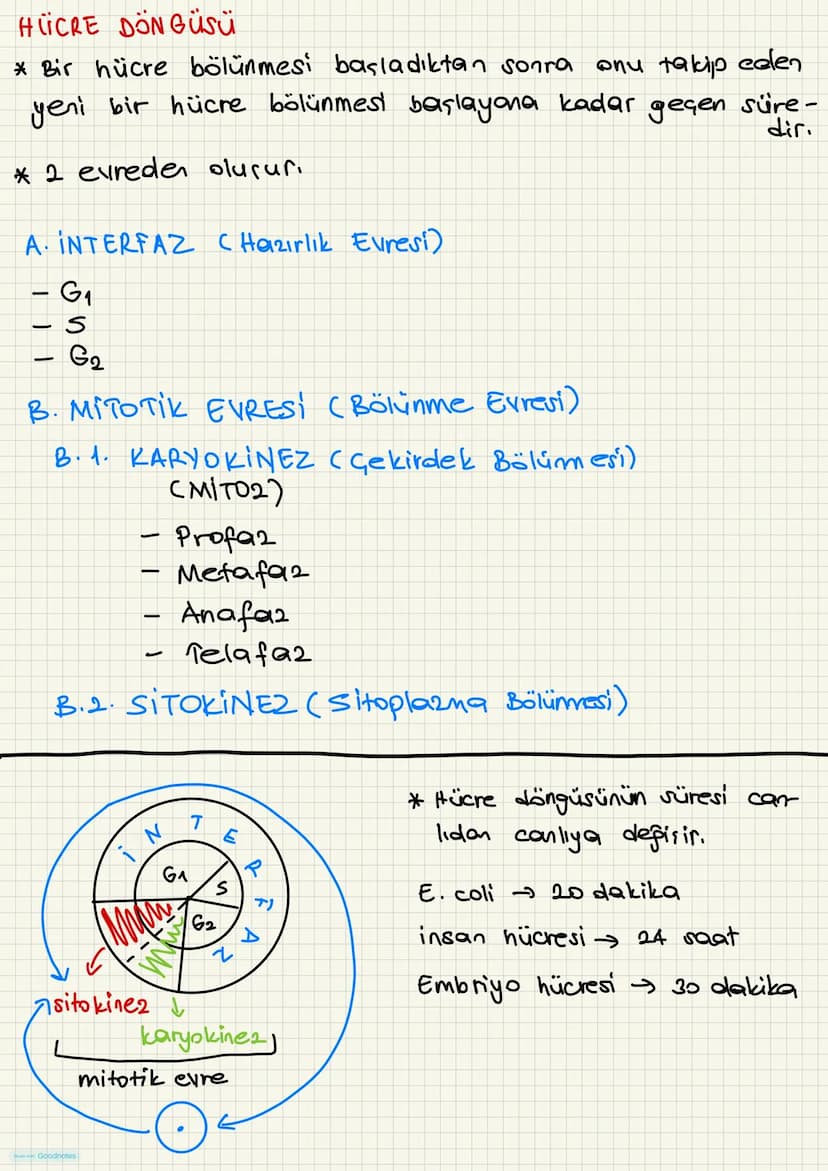 HÜCRE DÖNGÜSÜ
* Bir hücre bölünmesi başladıktan sonra onu takip eden
yeni bir hücre bölünmesi başlayana kadar geçen süre-
dir.
* 2 evreden oluşur.
A. İNTERFAZ (Hazırlık Evresi)
- G1
- S
- G2
B. MİTOTİK EVRESİ (Bölünme Evresi)
B.1. KARYOKİNEZ (Çekirdek Bölünmesi)
(MİTOZ)
- Profaz
- Metafaz
- Anafaz
- Telafaz
B.2. SİTOKİNEZ (Sitoplazma Bölünmesi)
İNTERFAZ
G1
S
G2
sitokinez
karyokinez
mitotik evre
* Hücre döngüsünün süresi can-
lıdan canlıya değişir.
E. coli → 20 dakika
insan hücresi → 24 saat
Embriyo hücresi → 30 dakika
Made with Goodnotes